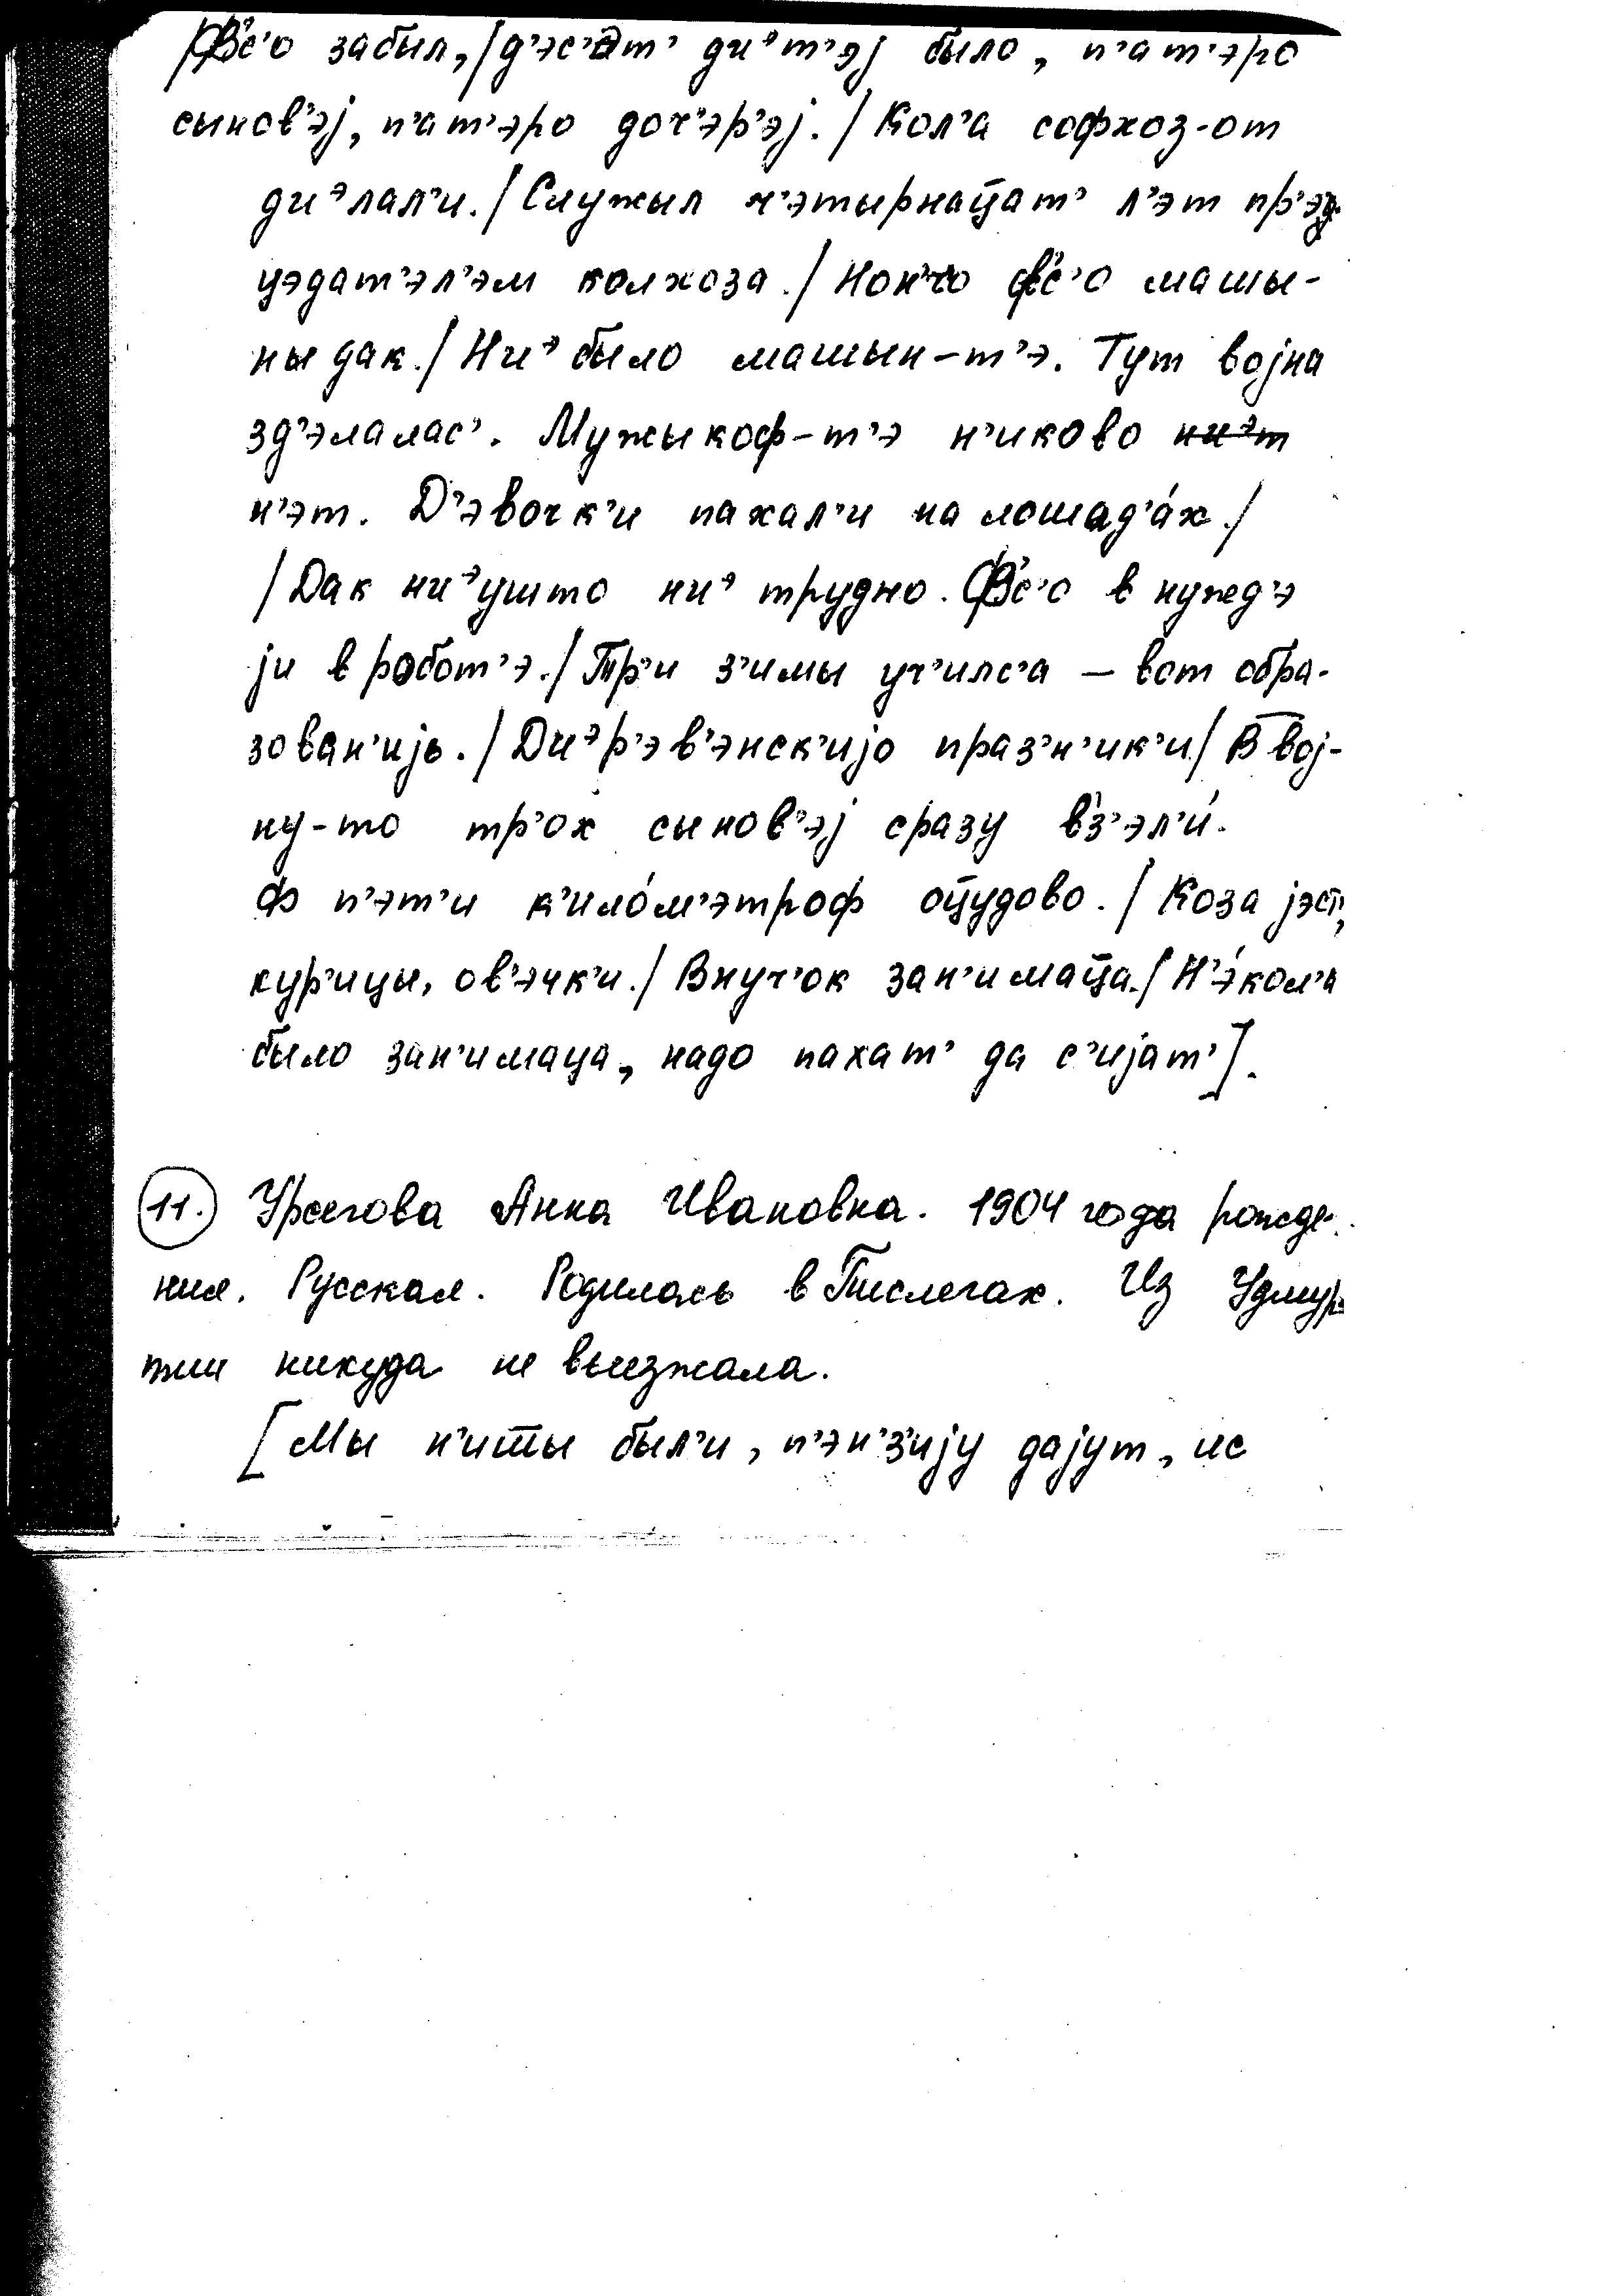 /В'с'о забыл, /д'эс'ат' диᵊт'эј было, п'ат'эро
сынов'эј, п'ат'эро доч'эр'эј. / Кол'а софхоз-от
диᵊлал'и. / Служыл ч'этырнац̅ат' л'эт пр'эд-
цэдат'эл'эм колхоза. / Нон'чо в'с'о машы-
ны дак. / Ниᵊ было машын-т'э. Тут војна
зд'элалас'. Мужыкоф-т'э н'иково
н'эт. Д'эвочк'и пахал'и на лошад'а́х. /
/ Дак ниᵊушто ниᵊ трудно. В'с'о в нужд'э
ји в робот'э. / Тр'и з'имы уч'илс'а – вот обра-
зован'ијь. / Диᵊр'эв'энск'ијо праз'н'ик'и / В вој-
ну-то тр'ох сынов'эј сразу вз'эл'и́.
Ф п'эт'и к'ило́м'этроф оц̅удово. / Коза јэст',
кур'ицы, ов'эчк'и. / Внуч'ок зан'имац̅а. / Н'э́кол'а
было зан'имаца, надо пахат' да с'ијат'].
11. Урсегова Анна Ивановна. 1904 года рожде-
ния. Русская. Родилась в Тислегах. Из Удмур-
тии никуда не выезжала.
[Мы н'ит̅ы был'и, п'эн'з'ију дајут, ис